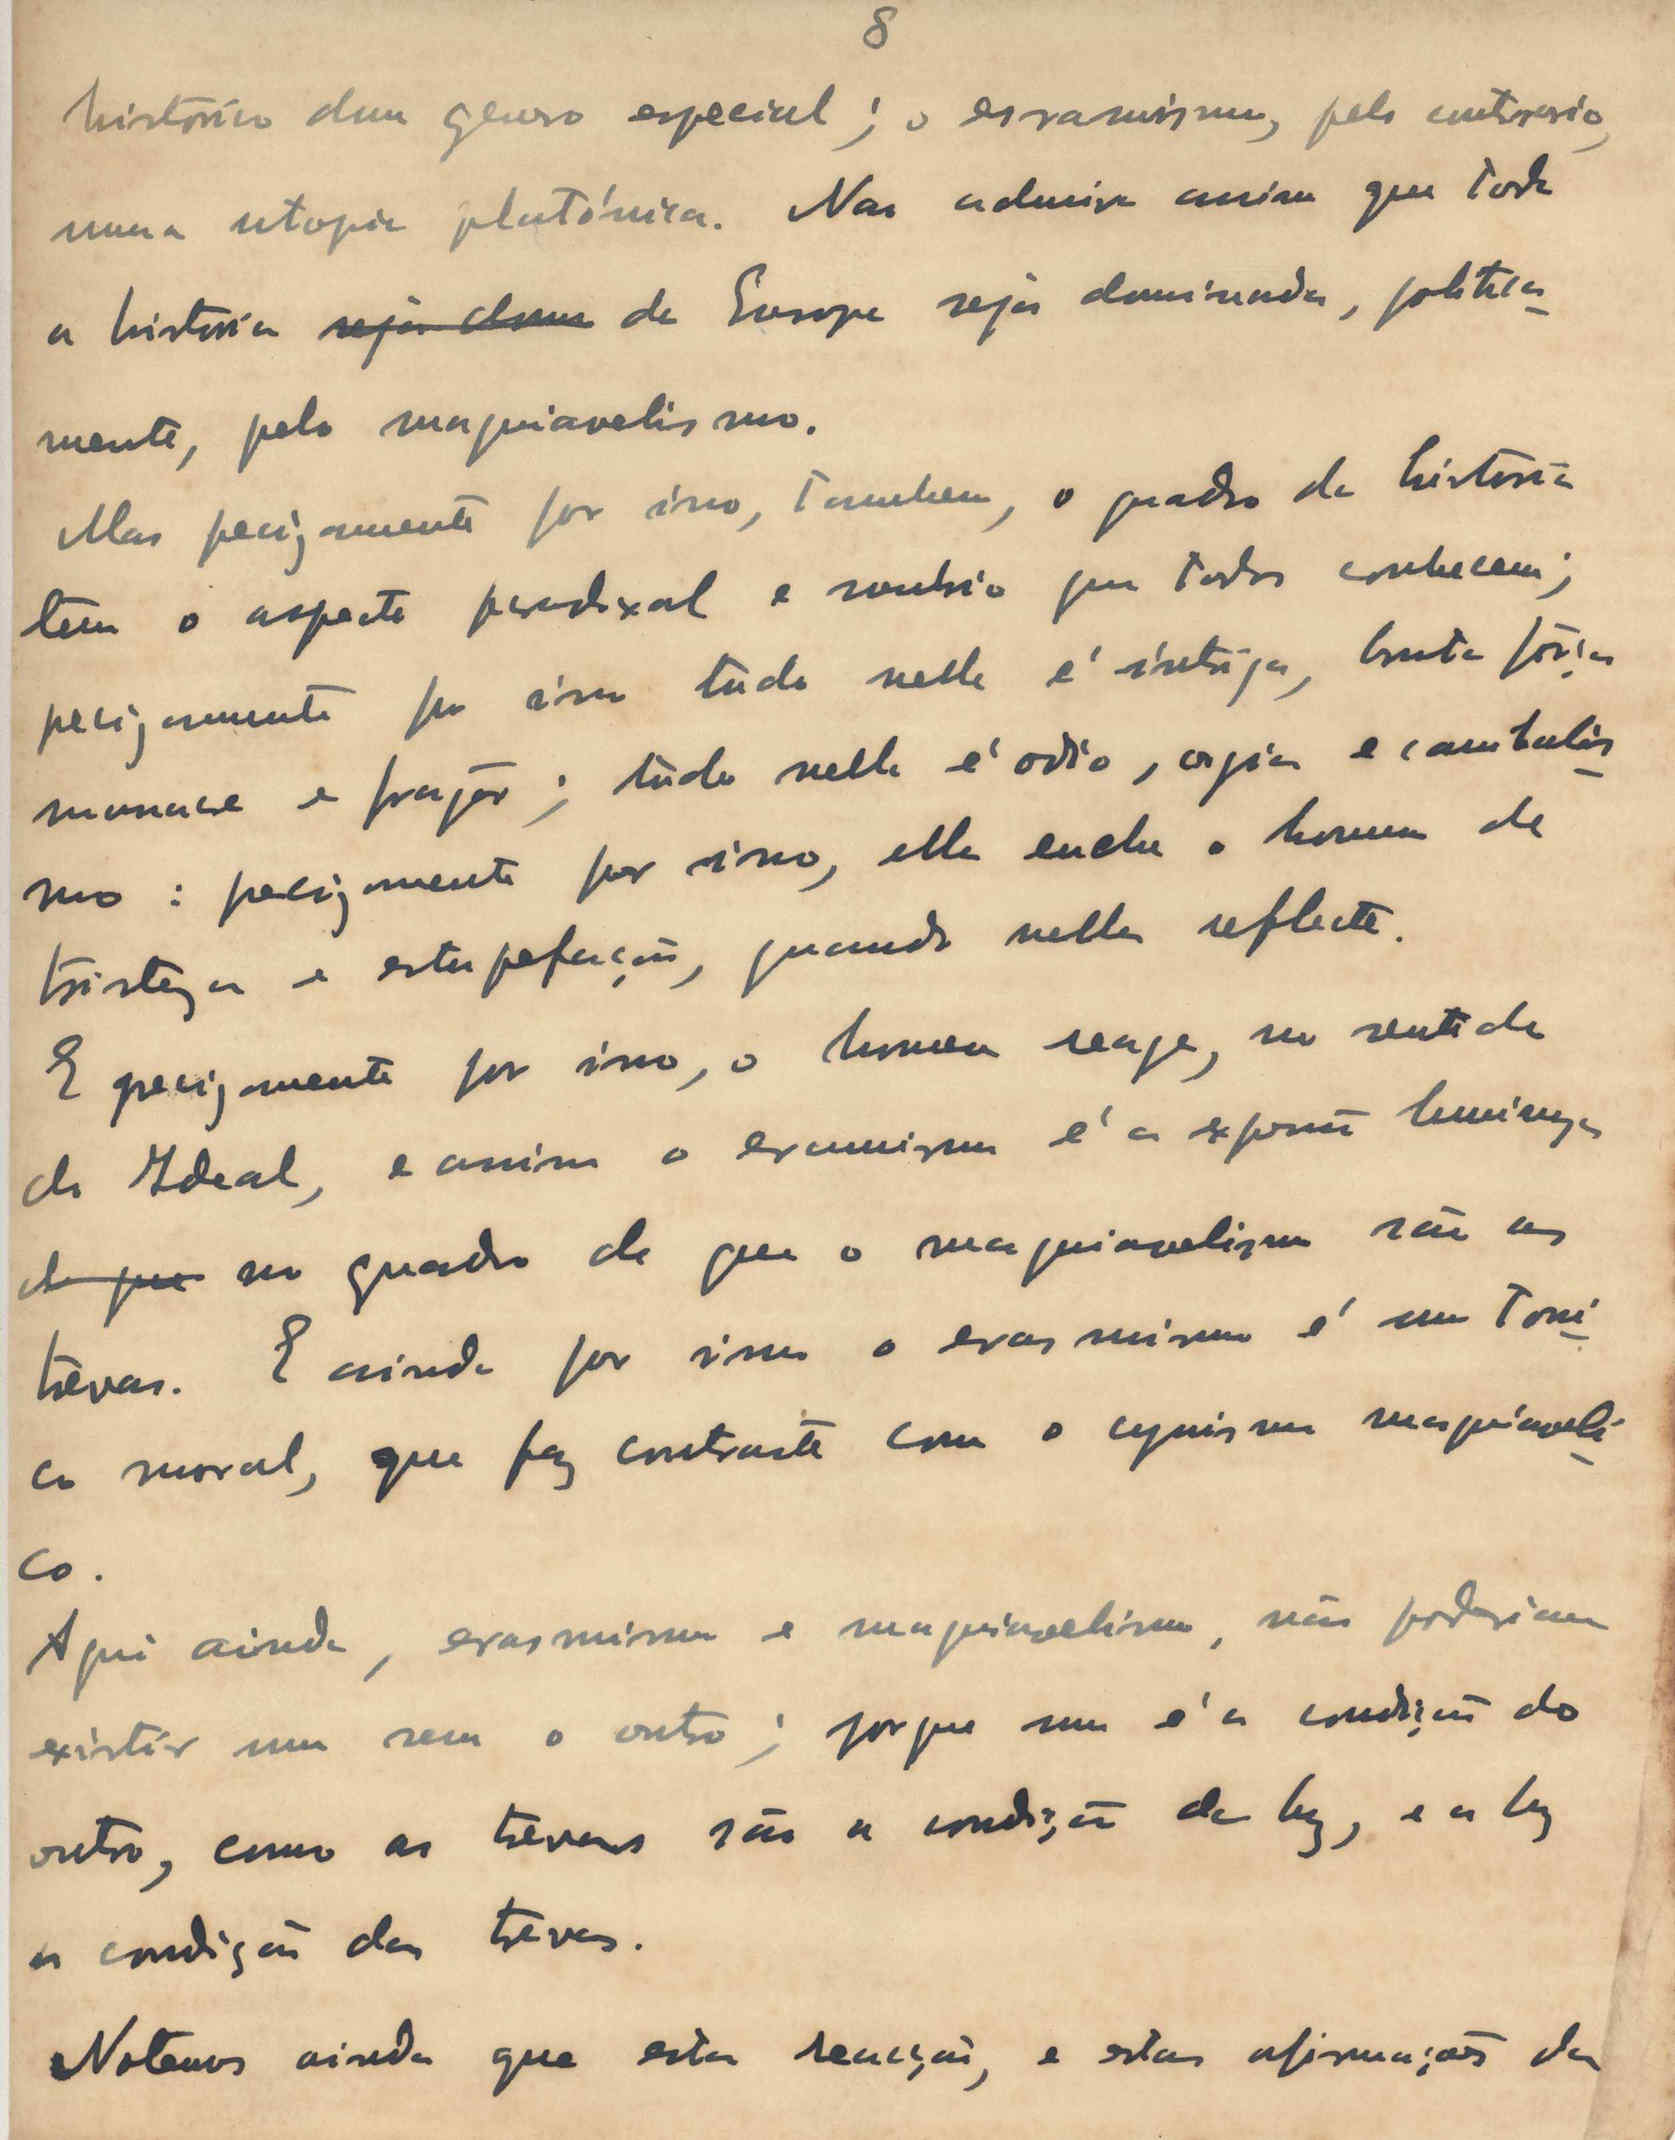 8
histórico dum genero especial; o esramismo, pelo contrario,
numa utopia platónica. Nao admira assim que toda
a historia seja dom da Europa seja dominada, politica-
mente, pelo maquiavelismo.
Mas precizamente por isso, tambem, o quadro da historia
tem o aspecto paradoxal e sombrio que todos conhecem;
precizamente por isso tudo nella é intriga, bruta força
e fragor; tudo nella é odio, orgia e canibalis-
mo: precizamente por isso, ella enche o homem de
tristeza e estupefação, quando nella reflecte.
E precizamente por isso, o homem reage, no sentido
do Ideal, e assim o erasmismo é a luminoza
do que no quadro de que o maquiavelismo são as
trevas. E ainda por isso o erasmismo é um toni-
co moral, que faz contraste com o cynismo maquiaveli-
co.
Aqui ainda, erasmismo e maquiavelismo, não poderiam
existir um sem o outro; porque um é a condição do
outro, como as trevas são a condição da luz, e a luz
a condição das trevas.
Notemos ainda que esta reacção, e estas afirmações da